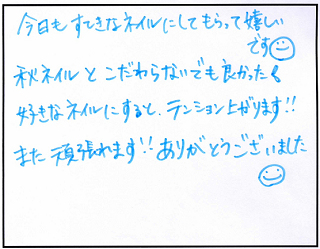 今日もすてきなネイルにしてもらって嬉しい
です
秋ネイルとこだわらないでも良かった。
好きなネイルにすると、テンション上がります!!
また頑張れます!! ありがとうございました